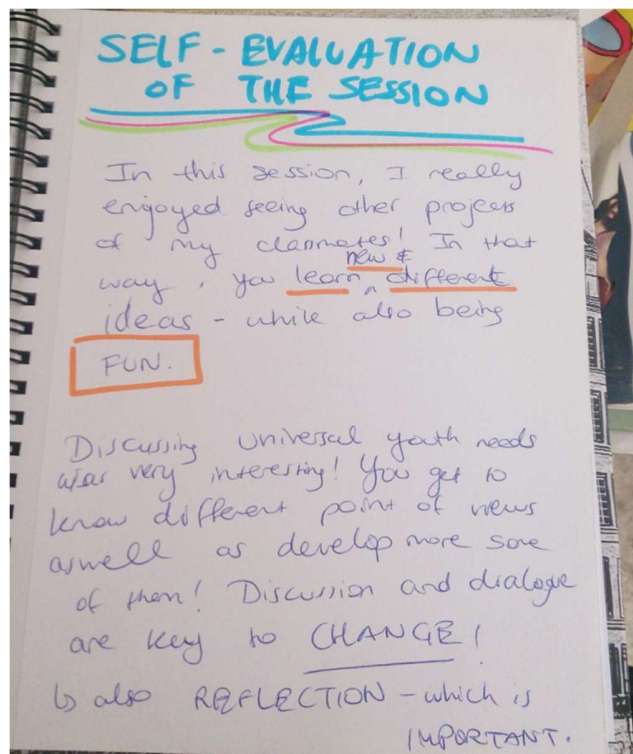 SELF-EVALUATION
OF THE SESSION
In this session, I really
engoyed seeing other projects
of my classmates! In that
new &
way, you learn ^ different
ideas - while also being
FUN.
Discussing universal youth needs
was very interesting! You get to
know different point of views
aswell as develop more some
of them! Discussion and dialogue
are key to CHANGE!
↳ also REFLECTION - which is
IMPORTANT.